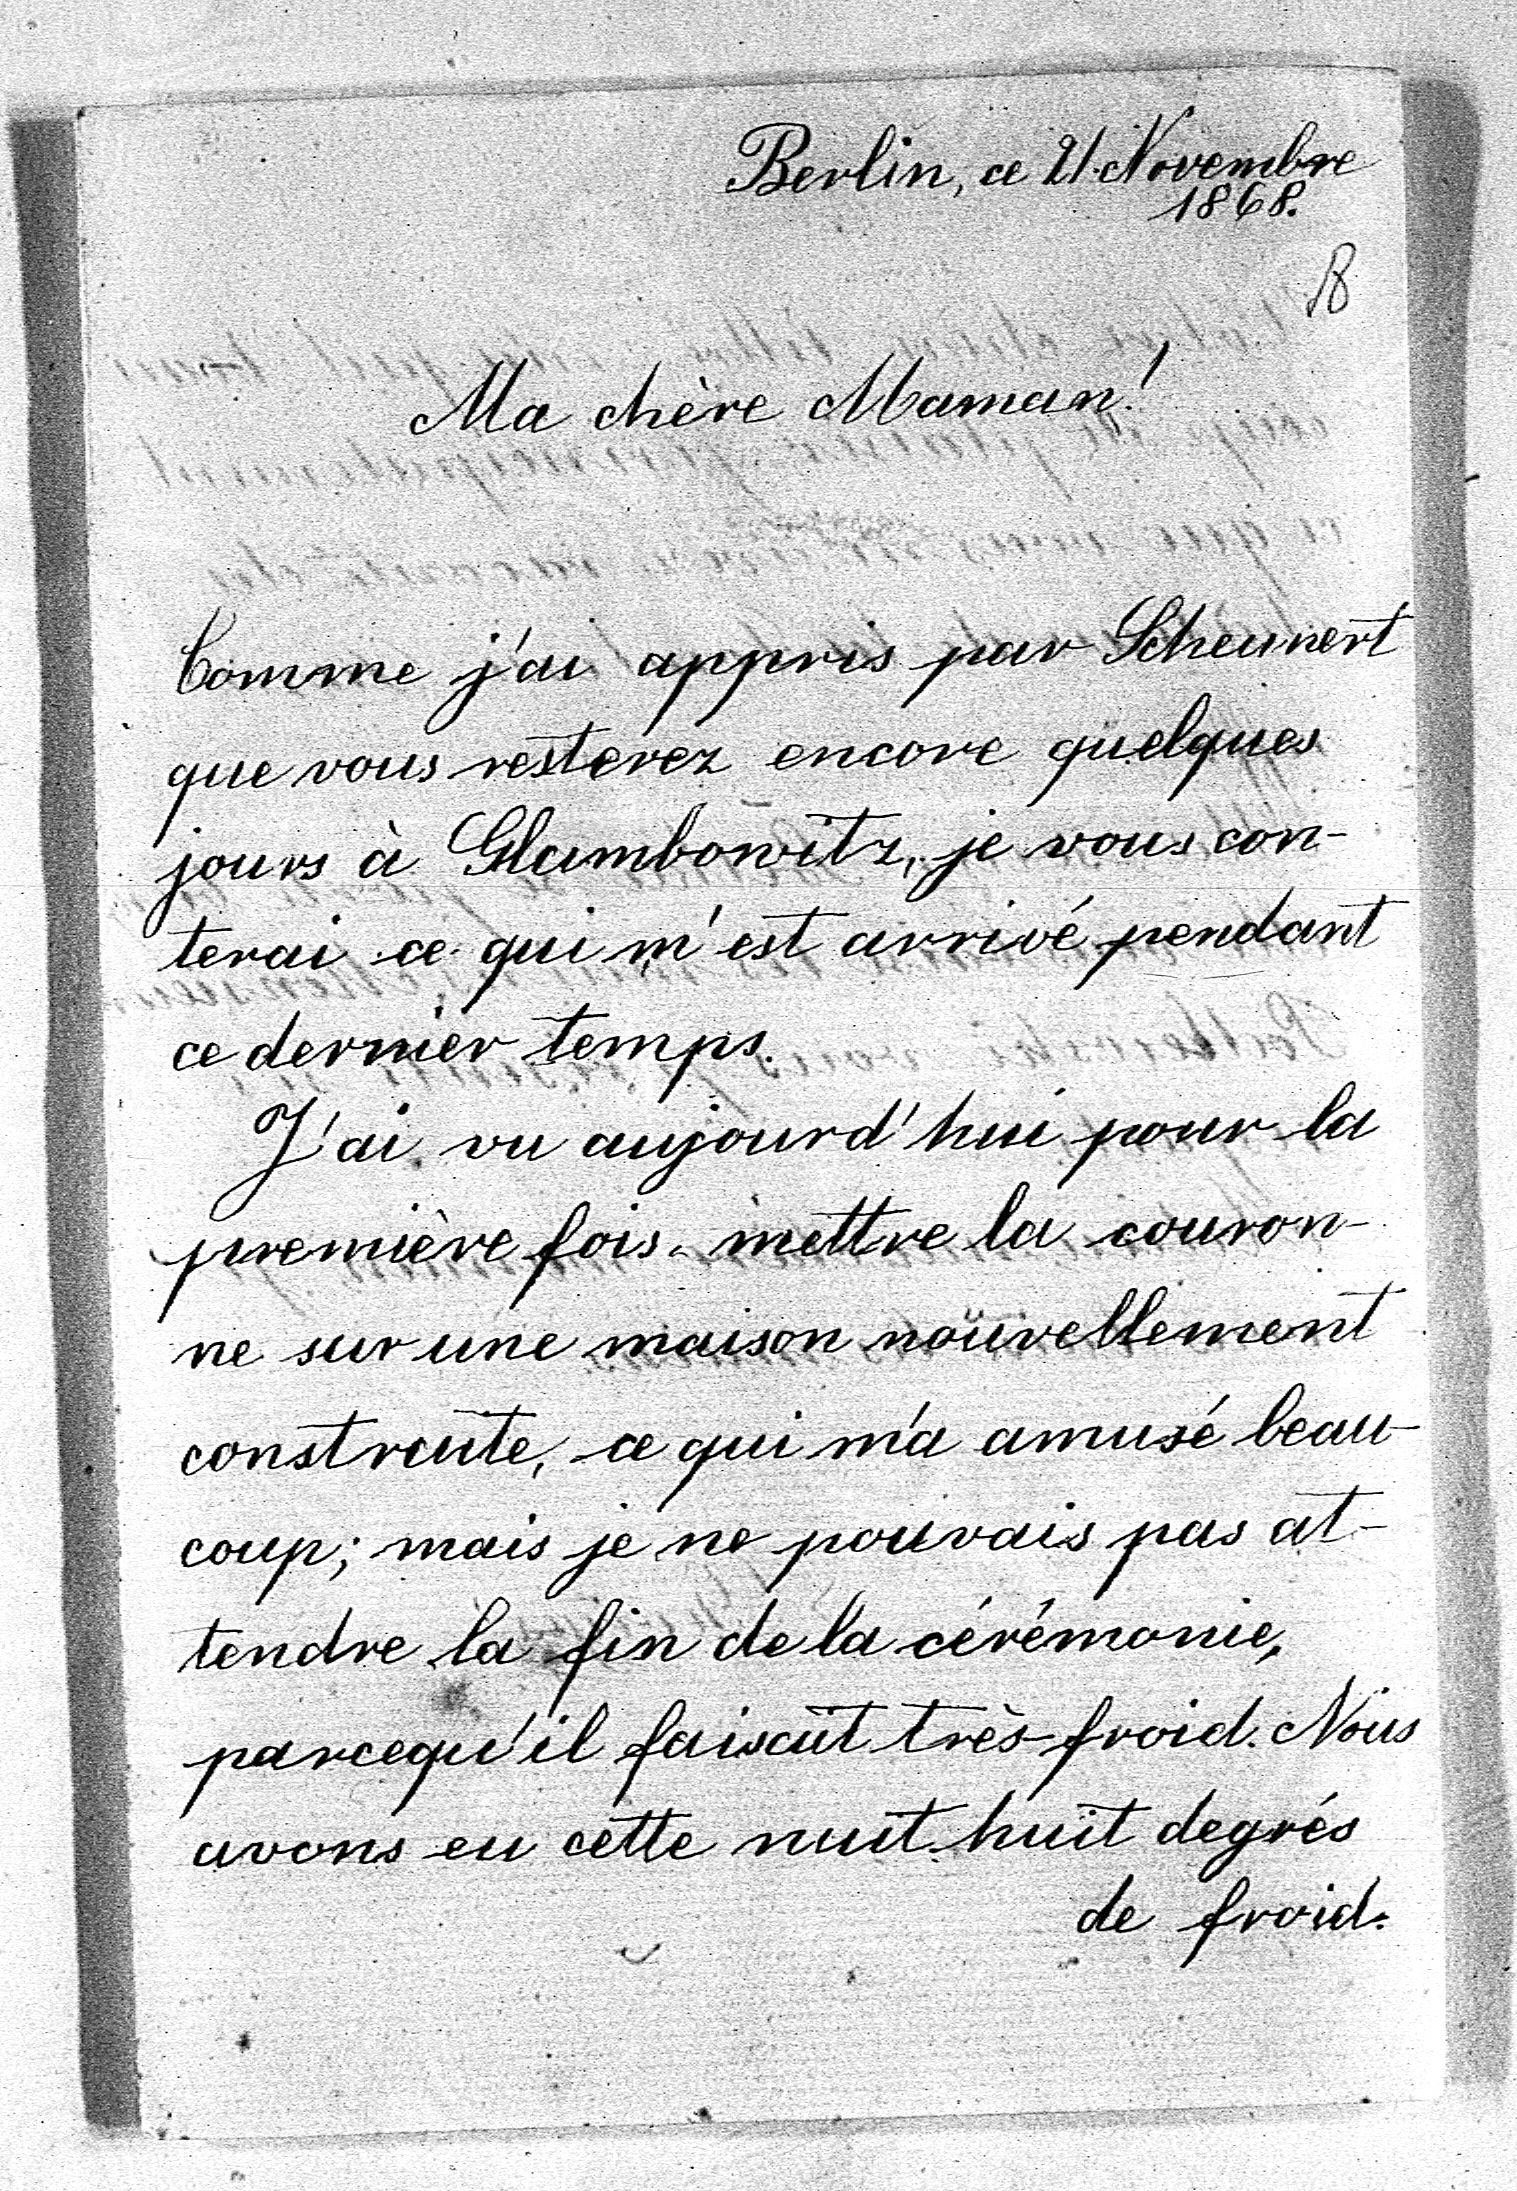 Berlin, ce 21. Novembre
1868.
B
Ma chère Maman!
Comme j'ai appris par Scheunert
que vous resterez encore quelques
jours à Glambowitz, je vous con-
terai ce qui m'est arrivé pendant
ce dernier temps.
J'ai vu aujourd'hui pour la
première fois mettre la couron-
ne sur une maison nouvellement
construite, ce qui m'a amusé beau-
coup; mais je ne pouvais pas at-
tendre la fin de la cérémonie,
parcequ'il faisait très-froid. Nous
avons eu cette nuit huit degrés
de froid.